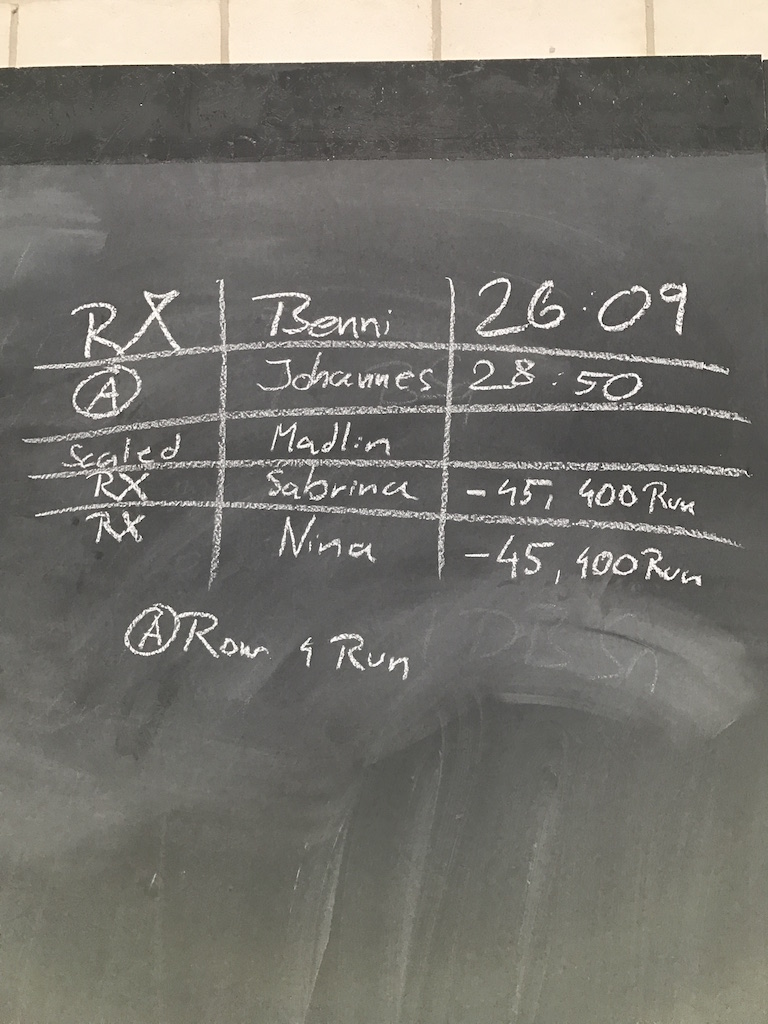 RX Benni 26:09
A Johannes 28:50
Scaled Madlin
RX Sabrina -45, 400 Run
RX Nina -45, 400 Run
A Row 4 Run